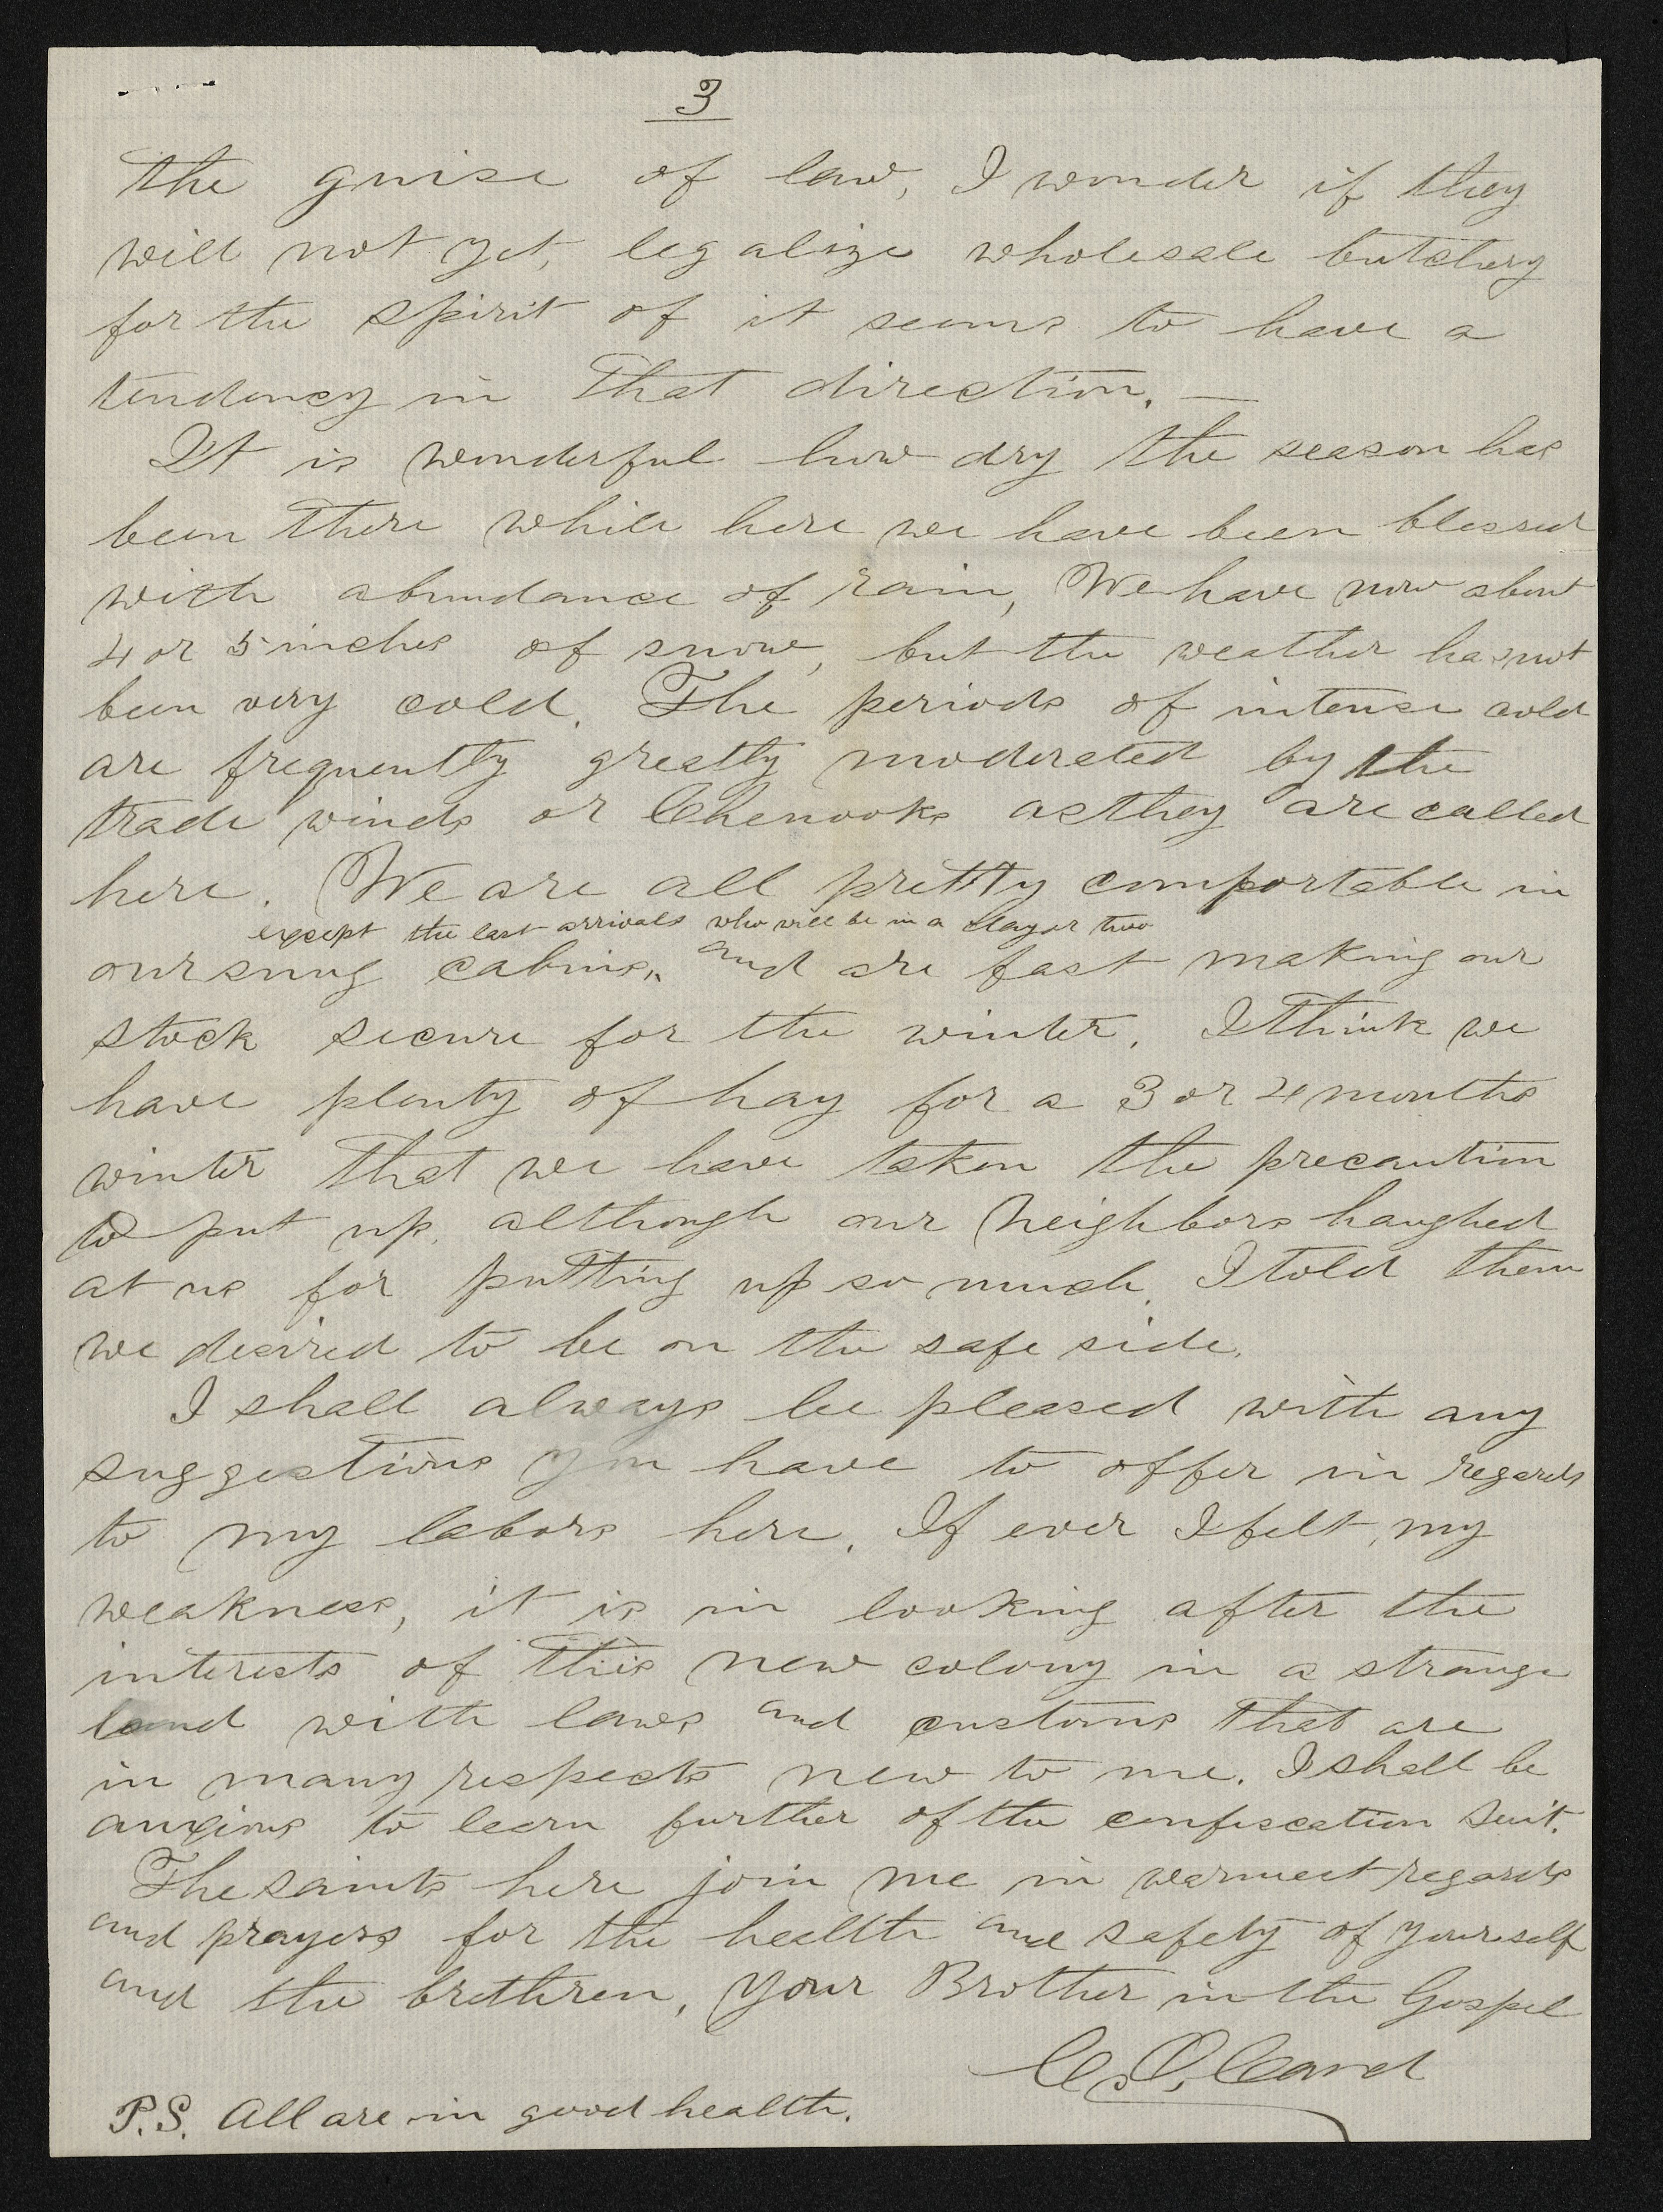 3
the guise of law, I wonder if they
will not yet, legalize wholesale butchery
for the spirit of it seems to have a
tendency in that direction. —
It is wonderful how dry the season has
been there while here we have been blessed
with abundance of rain, We have now about
4 or 5 inches of snow, but the weather has not
been very cold. The periods of intense cold
are frequently greatly moderated by the
trade winds or Chenooks as they are called
here. We are all pretty comfortable in
except the last arrivals who will be in a day or two
our snug cabins, and are fast making our
stock secure for the winter. I think we
have plenty of hay for a 3 or 4 months
winter that we have taken the precaution
to put up, although our neighbors laughed
at us for putting up so much. I told them
we desired to be on the safe side.
I shall always be pleased with any
suggestions you have to offer in regards
to my labors here. If ever I felt, my
weakness, it is in looking after the
interests of this new colony in a strange
land with laws and customs that are
in many respects new to me. I shall be
anxious to learn further of the confiscation suit.
The saints here join me in warmest regards
and prayers for the health and safety of yourself
and the brethren, Your Brother in the Gospel
C. O. Card
P.S. All are in good health.